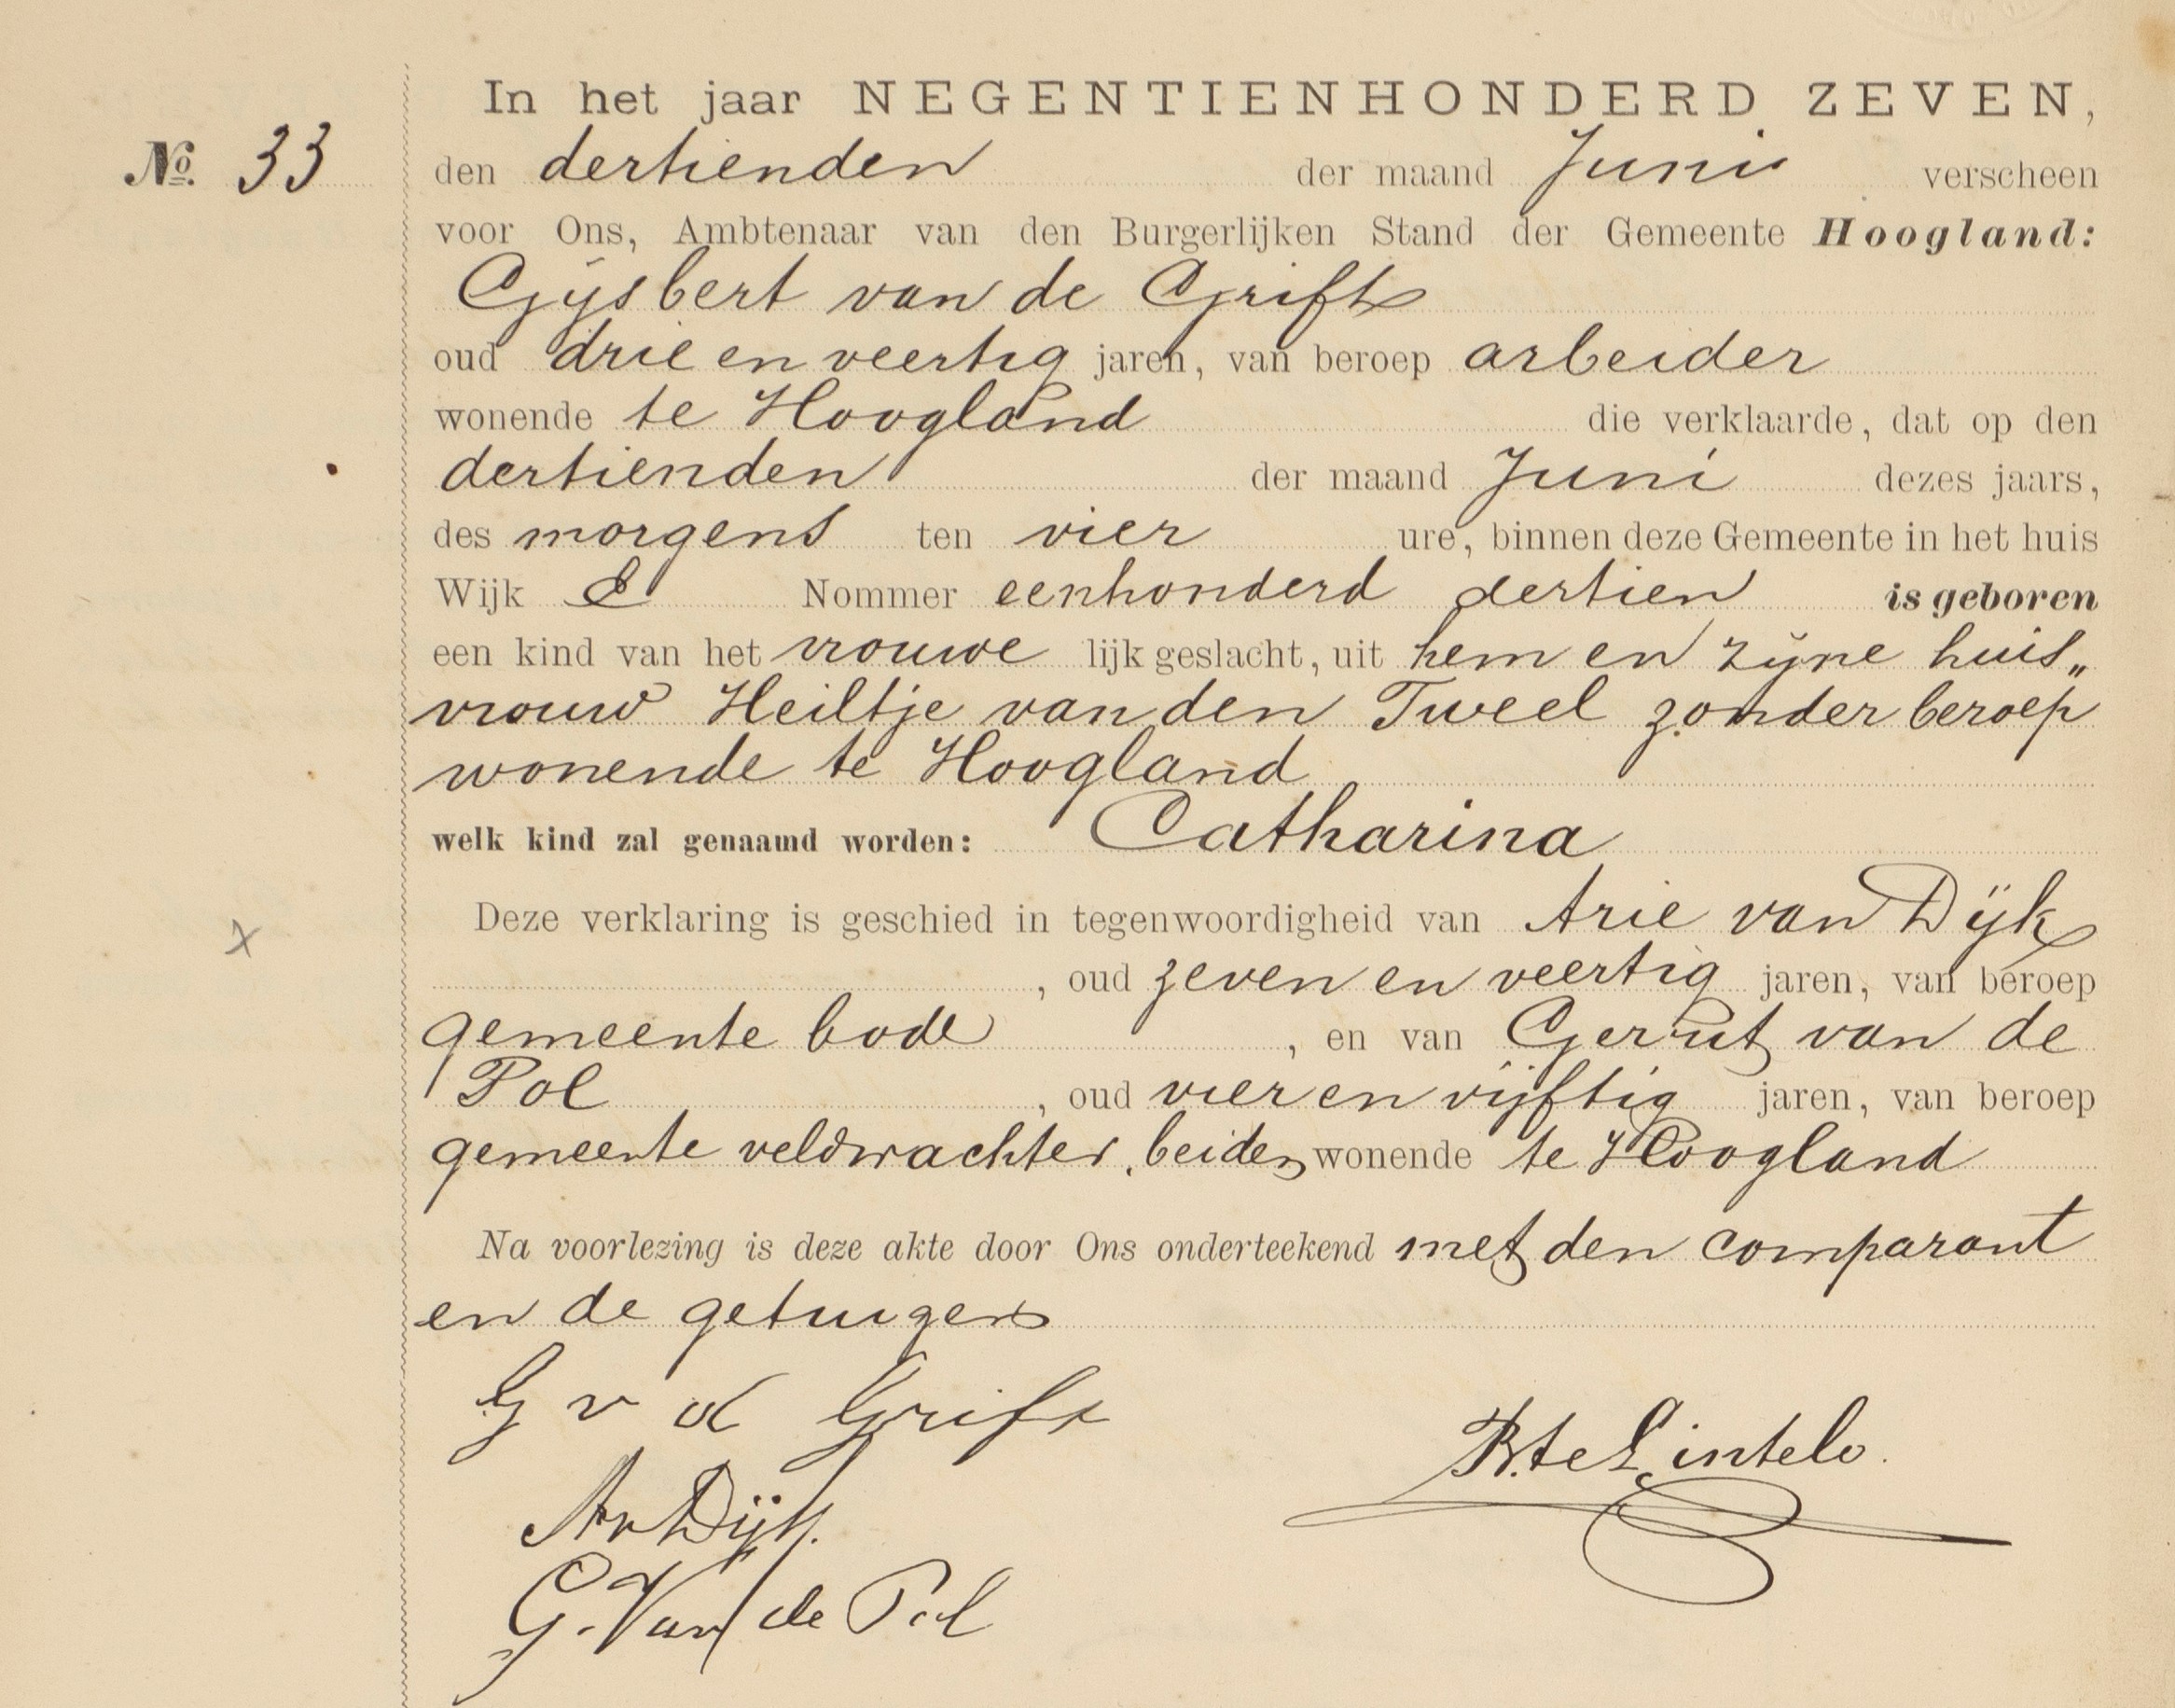 In het jaar NEGENTIENHONDERD ZEVEN,
No. 33 den dertienden der maand Juni verscheen
voor Ons, Ambtenaar van den Burgerlijken Stand der Gemeente Hoogland:
Gijsbert van de Grift
oud drie en veertig jaren, van beroep arbeider
wonende te Hoogland die verklaarde, dat op den
dertienden der maand Juni dezes jaars,
des morgens ten vier ure, binnen deze Gemeente in het huis
Wijk Nommer eenhonderd dertien is geboren
een kind van het vrouwe lijk geslacht, uit hem en zijne huis„
vrouw Heiltje van den Tweel zonder beroep
wonende te Hoogland
welk kind zal genaamd worden: Catharina
Deze verklaring is geschied in tegenwoordigheid van Arie van Dijk
, oud zeven en veertig jaren, van beroep
gemeente bode , en van Gerrit van de
Pol , oud vier en vijftig jaren, van beroep
gemeente veldwachter, beiden wonende te Hoogland
Na voorlezing is deze akte door Ons onderteekend met den comparant
en de getuigen
G v d Grift
B. te Lintelo.
A v Dijk.
G. Van de Pol